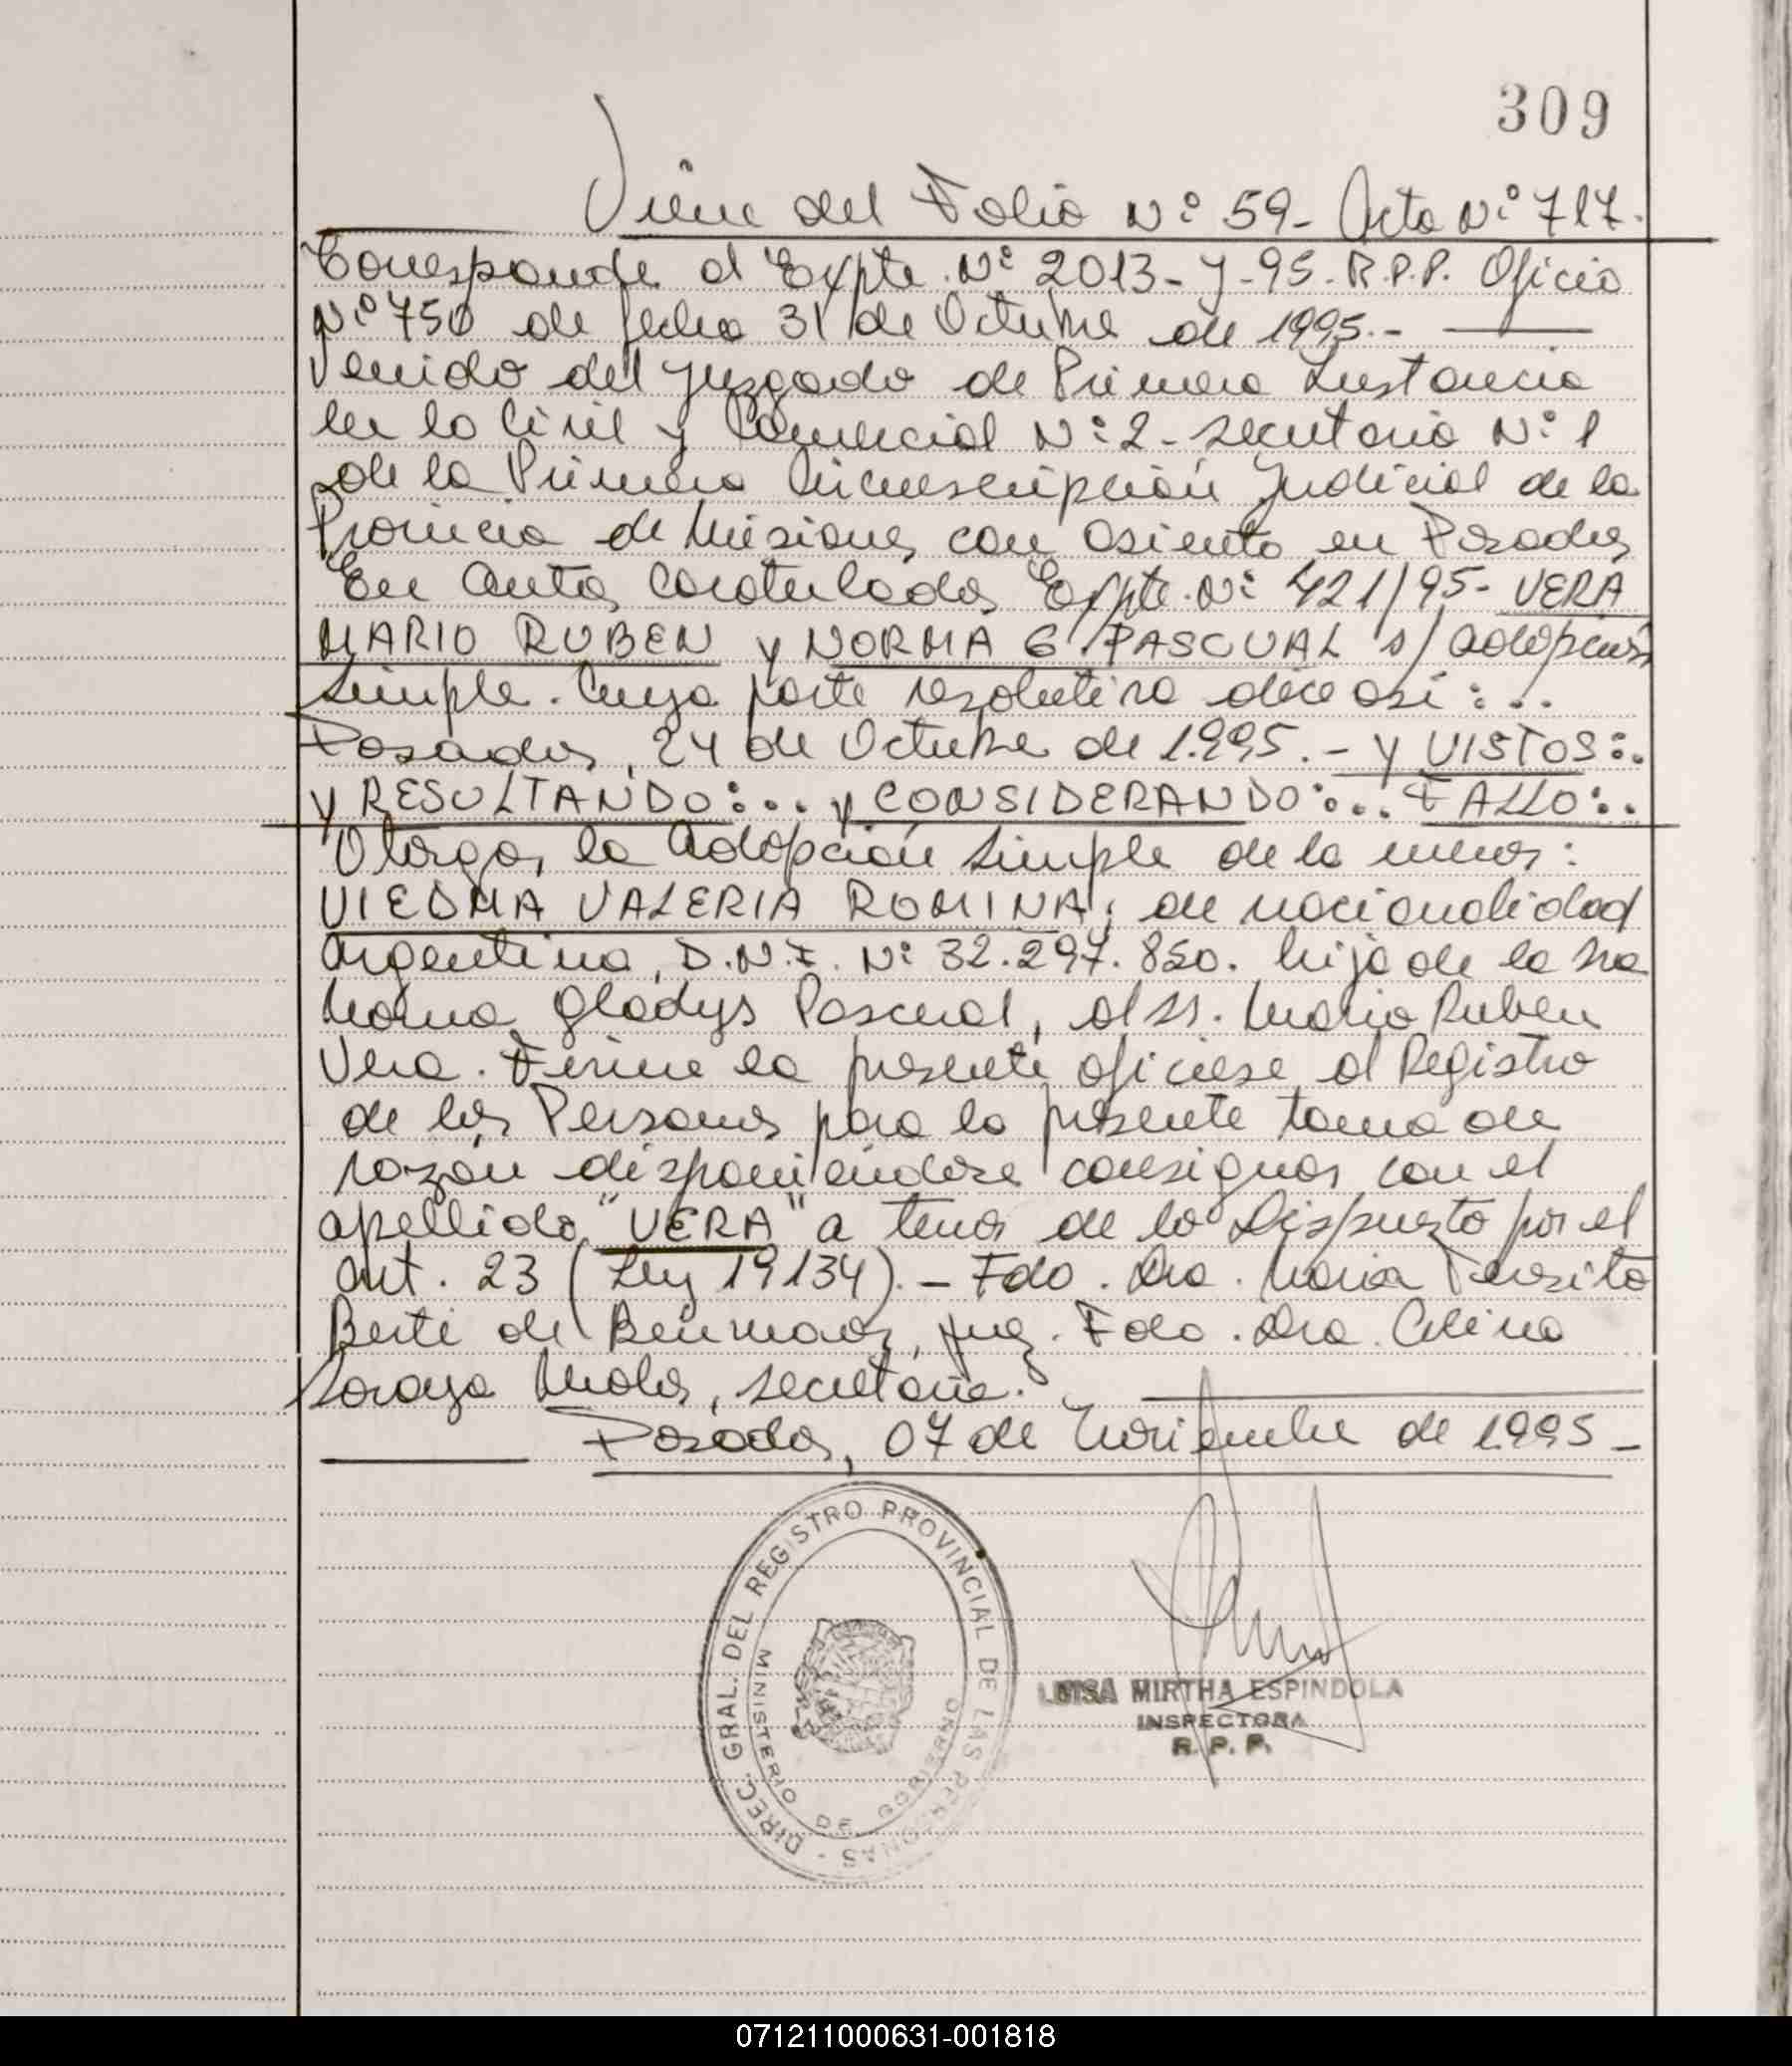 309
Viene del Folio Nº 59- Acta Nº 717.
Corresponde al Expte. Nº 2013-J-95-R.P.P. Oficio
Nº 750 de fecha 31 de Octubre de 1995.-
Venido del Juzgado de Primera Instancia
en lo Civil y Comercial Nº 2- Secretaria Nº 1
de la Primera Circunscripción Judicial de la
Provincia de Misiones con asiento en Posadas
En Autos Caratulados Expte. Nº 421/95- VERA
MARIO RUBEN y NORMA G PASCUAL s/ adopción
Simple. Cuya parte resolutiva dice asi:...
Posadas, 24 de Octubre de 1.995.- Y VISTOS:.
Y RESULTANDO:... y CONSIDERANDO:... FALLO:.
Otorgar la adopción Simple de la menor:
VIEDMA VALERIA ROMINA, de nacionalidad
Argentina, D.N.I. Nº 32.297.850. hija de la Sra
Norma Gladys Pascual, al Sr. Mario Ruben
Vera. Firme la presente oficiese al Registro
de las Personas para la presente toma de
razón disponiendose consignar con el
apellido "VERA" a tenor de lo Dispuesto por el
Art. 23 (Ley 19134).- Fdo. Dra. Maria Teresita
Berti de Juez. Fdo. Dra. Celina
Soraya secretaria.
Posadas, 07 de Noviembre de 1.995-
DIREC. GRAL. DEL REGISTRO PROVINCIAL DE LAS PERSONAS
MINISTERIO DE GOBIERNO
LUISA MIRTHA ESPINDOLA
INSPECTORA
R. P. P.
071211000631-001818